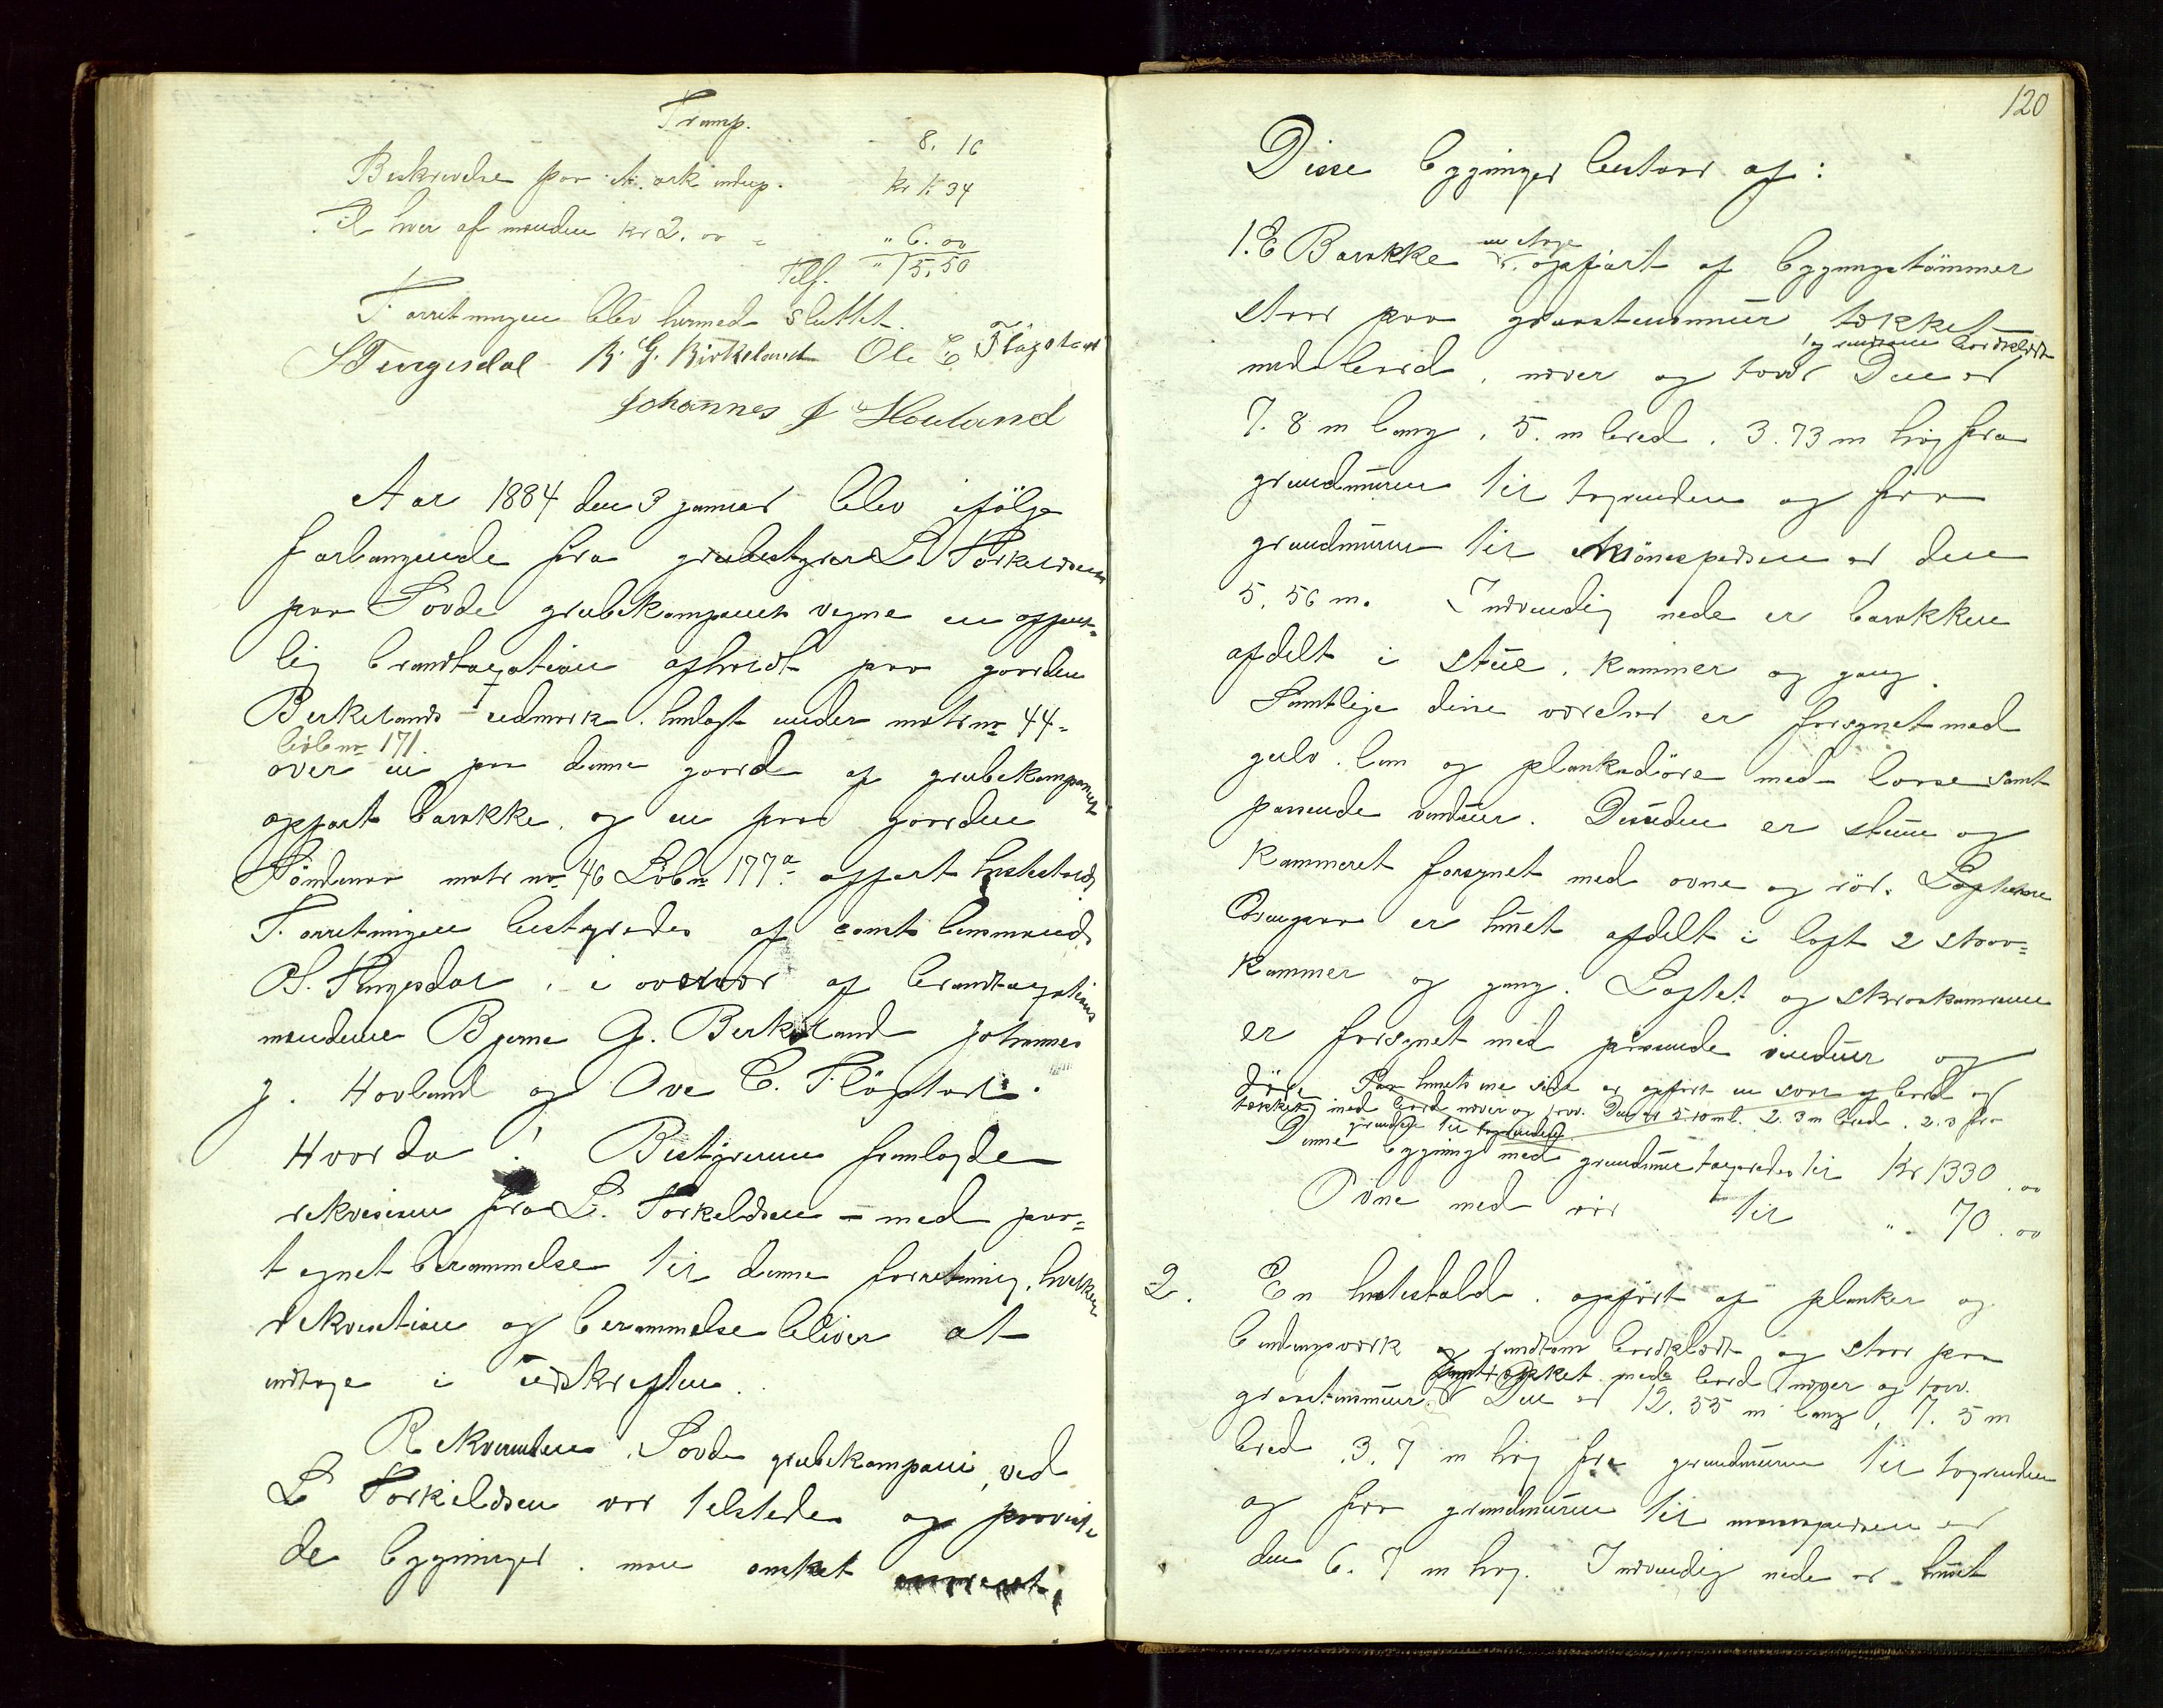 Transp.
8. 16
Beskrivelse paa st. ark indup. kr 1. 34
Til hver af mændene kr 2. 00 = " 6. 00
Tils. " 15. 50
Forretningen blev hermed sluttet.
S Tengesdal B. G. Birkeland Ole E. Fløgstad
Johannes J Houland
Aar 1884 den 3 januar blev ifölge
forlangende fra grubebestyrer L. Torkeldsen
paa Sovde grubekompanis vegne en offent-
lig brandtaxation afholdt paa gaarden
Berkelands udmark, indlagt under matr no 44-
löbno 171.
over en paa denne gaard af grubekompaniet
opfört barakke, og en paa gaarden
Söndenaa matr no 46 Löbno 177a opfört hestestald.
Forretningen bestyredes af const. lensmand
S. Tengesdal, i overvær af brandtaxations
mændene Bjerne G. Berkeland Johannes
J. Hovland og Ove E. Flögstad.
Hvorda! Bestyreren fremlagde
rekvisision fra L. Torkeldsen – med paa-
tegnet berammelse til denne forretning, hvilken
rekvisition og berammelse bliver at
indtage i udskriften.
Rekvirenten, Sovde grubekompani, ved
L Torkildsen var tilstede og paaviste
de bygninger, man ønsket
120
Disse bygninger bestaar af:
1. E Barakke en etage opfört af bygningstömmer
staar paa graastensmuur, tækket
og udvendig bordklædt
med bord, næver og torv Den er
7. 8 m lang, 5. m bred, 3. 73 m höj fra
grundmuren til tagrenden og fra
grundmuren til mönespidsen er den
5. 56 m. Indvendig nede er barakken
afdelt i stue, kammer og gang.
Samtlige disse værelser er forsynet med
gulv, lem og plankedöre med laase samt
passende vinduer. Desuden er stuen og
kammeret forsynet med ovne og rör.
Ovenpaa er huset afdelt i loft 2 skraa-
kammer og gang. Loftet og skraakammerne
er forsynet med passende vinduer og
döre Paa husets ene side er opfört en svale af bord og
tækket med bord næver og torv. Den er 5. m l. 2. 3 m bred. 2. 3 fra
grundsten til tagrenden
Denne bygning med grundmur taxeredes til Kr 1330. 00
Ovne med rör til ". 70. 00
2. En hestestald, opfört af planker og
bindingsværk og rundtom bordklædt og staar paa
samt tækket med bord næver og torv.
graastensmuur. Den er 12. 55 m lang, 7. 5 m
bred, 3. 7 m höj fra grundmuren til tagrenden
og fra grundmuren til mönespidsen er
den 6. 7 m höj. Indvendig nede er huset